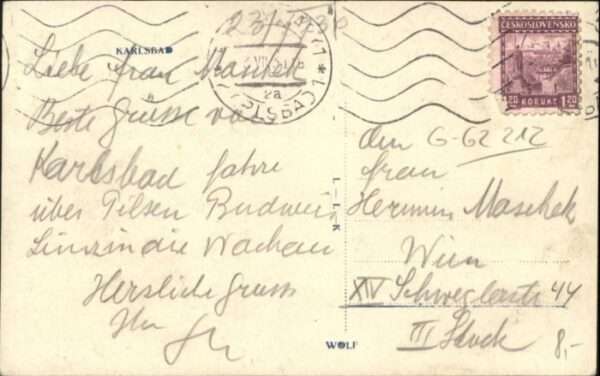 KARLSBAD
Liebe Frau Maschek
Beste Grüsse von
Karlsbad fahre
über Pilsen Budweis
Linz in die Wachau
Herzliche Grüsse
Ihr
ČESKOSLOVENSKO
1.20 KORUNA 1.20
2a
G-62 212
Frau
Hermine Maschek
Wien
XIV Schweglerstr 44
III Stock
8,-
L-I-K
WOLF